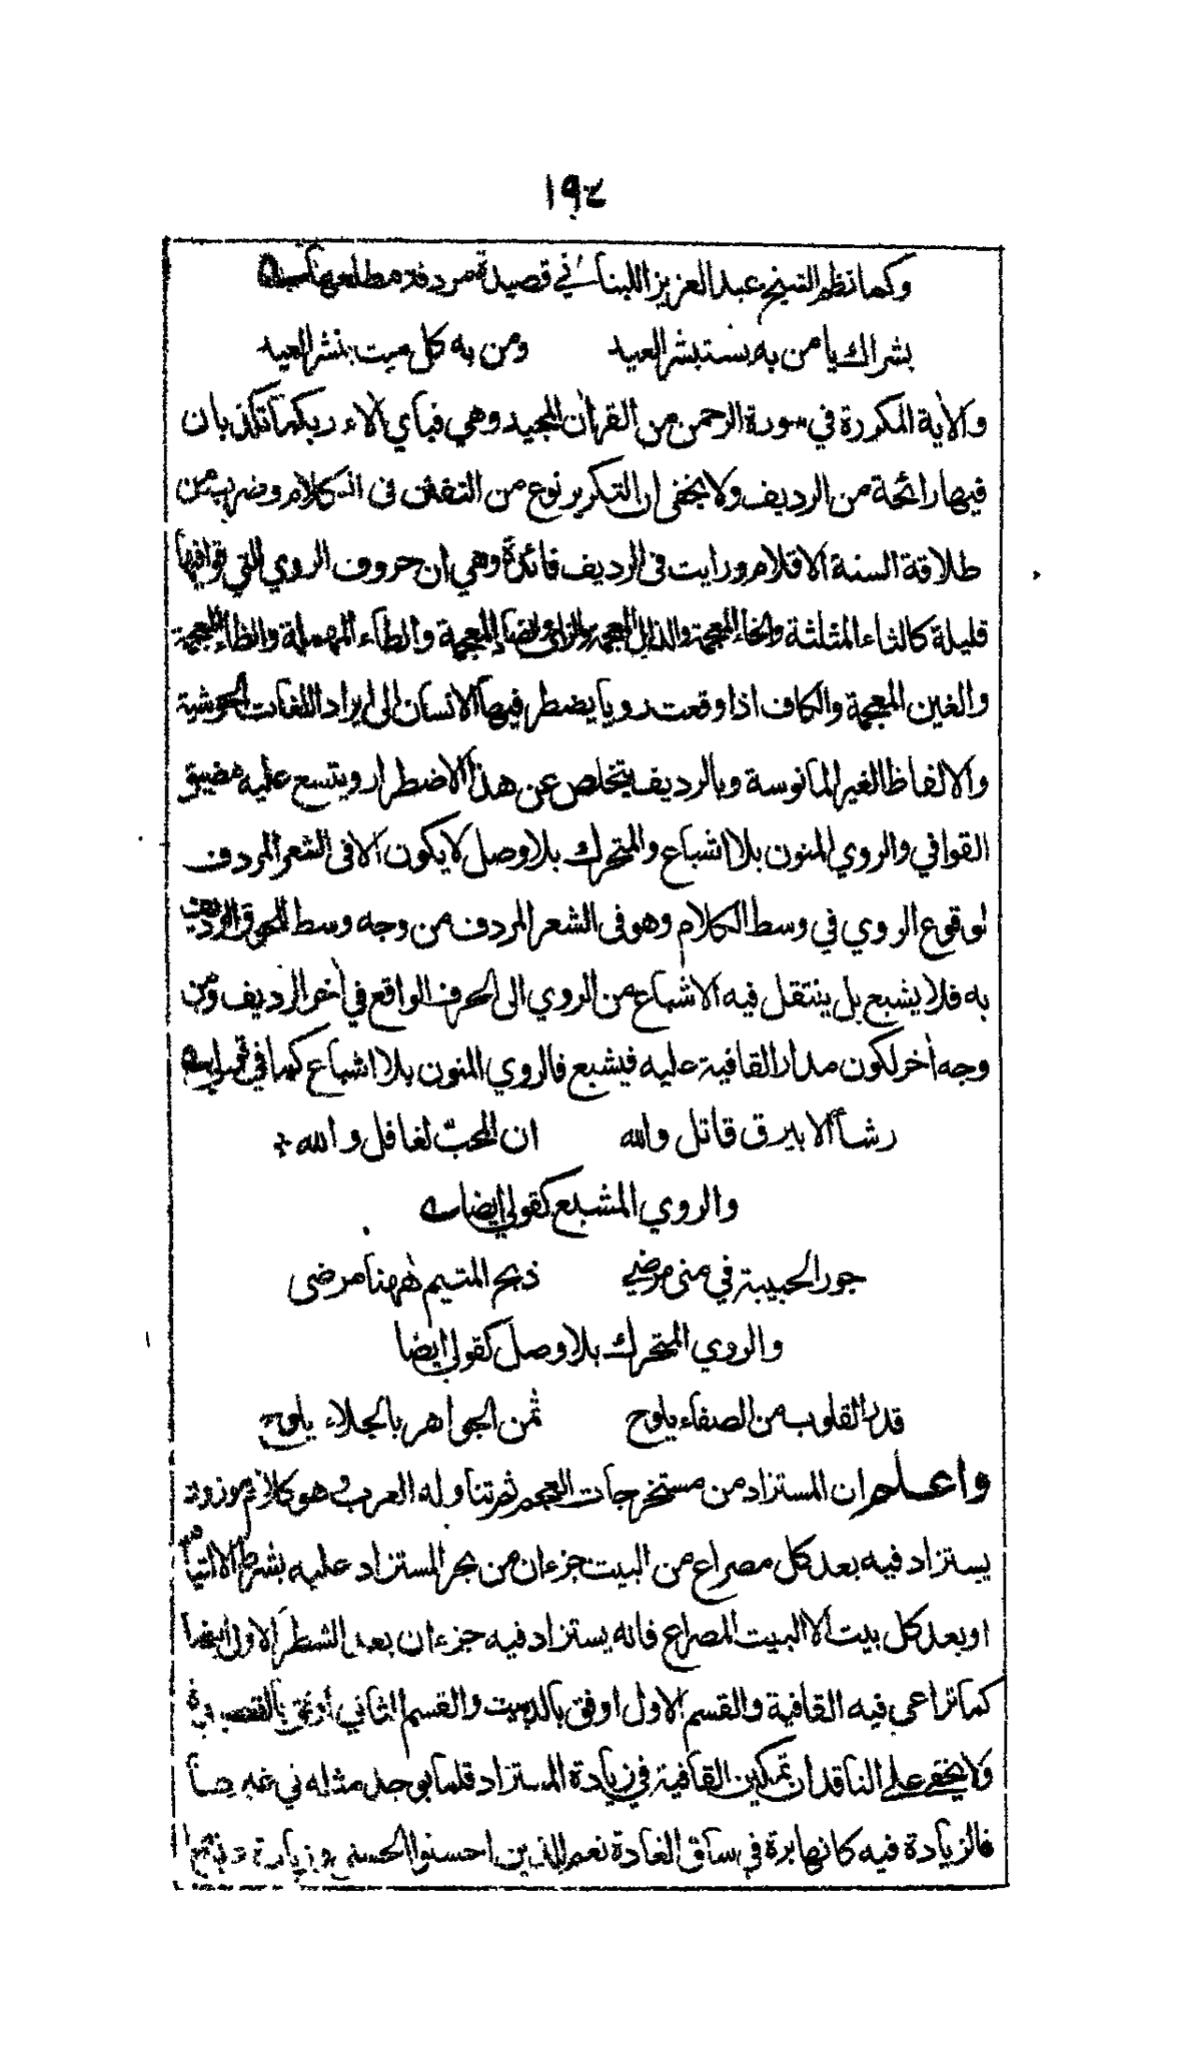 ١٩٤
وكما نظم الشيخ عبد العزيز اللبناني في قصيدة مردفة مطلعها
بشراك يا من به يستبشر العيد ومن به كل ميت ينشر العيد
والآية المكررة في سورة الرحمن من القرآن المجيد وهي فباي آلاء ربكما تكذبان
فيها رائحة من الرديف ولا يخفى ان التكرير نوع من التفنن فى الكلام وضرب من
طلاقة السنة الاقلام ورايت فى الرديف فائدة وهي ان حروف الروي التي قوافيها
قليلة كالثاء المثلثة والخاء المعجمة والذال المعجمة والزاى والضاد المعجمة والطاء المهملة والظاء المعجمة
والغين المعجمة والكاف اذا وقعت رويا يضطر فيها الانسان الى ايراد اللغات الحوشية
والالفاظ الغير المانوسة وبالرديف يتخلص عن هذا الاضطرار ويتسع عليه مضيق
القوافي والروي المنون بلا اشباع والمتحرك بلا وصل لا يكون الا فى الشعر المردف
لوقوع الروي في وسط الكلام وهو فى الشعر المردف من وجه وسط للحوق الرديف
به فلا يشبع بل ينتقل فيه الاشباع من الروي الى الحرف الواقع في آخر الرديف ومن
وجه آخر لكون مدار القافية عليه فيشبع فالروي المنون بلا اشباع كما في
رشأ الابيرق قاتل والله ان المحبّ لغافل والله
والروي المشبع كقولي ايضا
جور الحبيبة في منى مرضي ذبح المتيم ههنا مرضى
والروي المتحرك بلا وصل كقولي ايضا
قدر القلوب من الصفاء يلوح ثمن الجواهر بالجلاء يلوح
واعلم ان المستزاد من مستخرجات العجم ثم تناوله العرب وهو كلام موزون
يستزاد فيه بعد كل مصراع من البيت جزءان من بحر المستزاد عليه بشرط الالتيام
او بعد كل بيت الا البيت المصراع فانه يستزاد فيه جزءان بعد الشطر الاول ايضا
كما تراعى فيه القافية والقسم الاول اوفق بالبيت والقسم الثاني اوفق
ولا يخفى على الناقد ان تمكين القافية في زيادة المستزاد قلما يوجد مثله في غيره
فالزيادة فيه كانها برة في ساق الغادة نعم للذين احسنوا الحسنى وزيادة